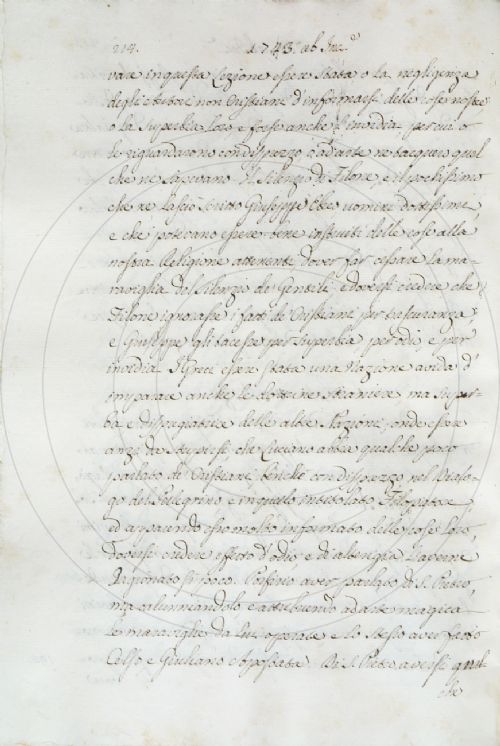 214. 1743. ab Inc.e
vare in questa Lezione essere stata o la negligenza
degli Autori non Cristiani d'informarsi delle cose nostre
o la Superbia loro e forse anche l'invidia per cui o
le riguardarono con disprezzo o ad arte ne tacquero quel
che ne sapevano. Il Silenzio di Filone, e il pochissimo
che ne lasciò scritto Giuseppe Ebreo uomini dottissimi,
e che potevano essere bene instruiti delle cose alla
nostra Religione attenenti dover far cessare la ma-
raviglia del Silenzo de Gentili e doversi credere che
Filone ignorasse i fatti de Cristiani per trascuranza
e Giuseppe gli tacesse per superbia per odio e per
invidia. I Greci essere stata una Nazione avida d'
imparare anche le dottrine straniere ma super-
ba e dispregiatrice delle altre Nazioni, onde essere
anzi da stupirsi che Luciano abbia qualche poco
parlato de' Cristiani benché con disprezzo nel Dialo-
go del Pellegrino e in quello intitolato Filopatore
ed apparendo esso molto informato delle cose loro,
doversi credere effetto d'odio e di alterigia l'averne
ragionato si poco. Porfirio aver parlato di S. Pietro,
ma calunniandolo, e attribuendo ad arte magica
le maraviglie da lui operate e lo stesso aver fatto
Celso e Giuliano Apostata. Di S. Pietro aversi qual-
che